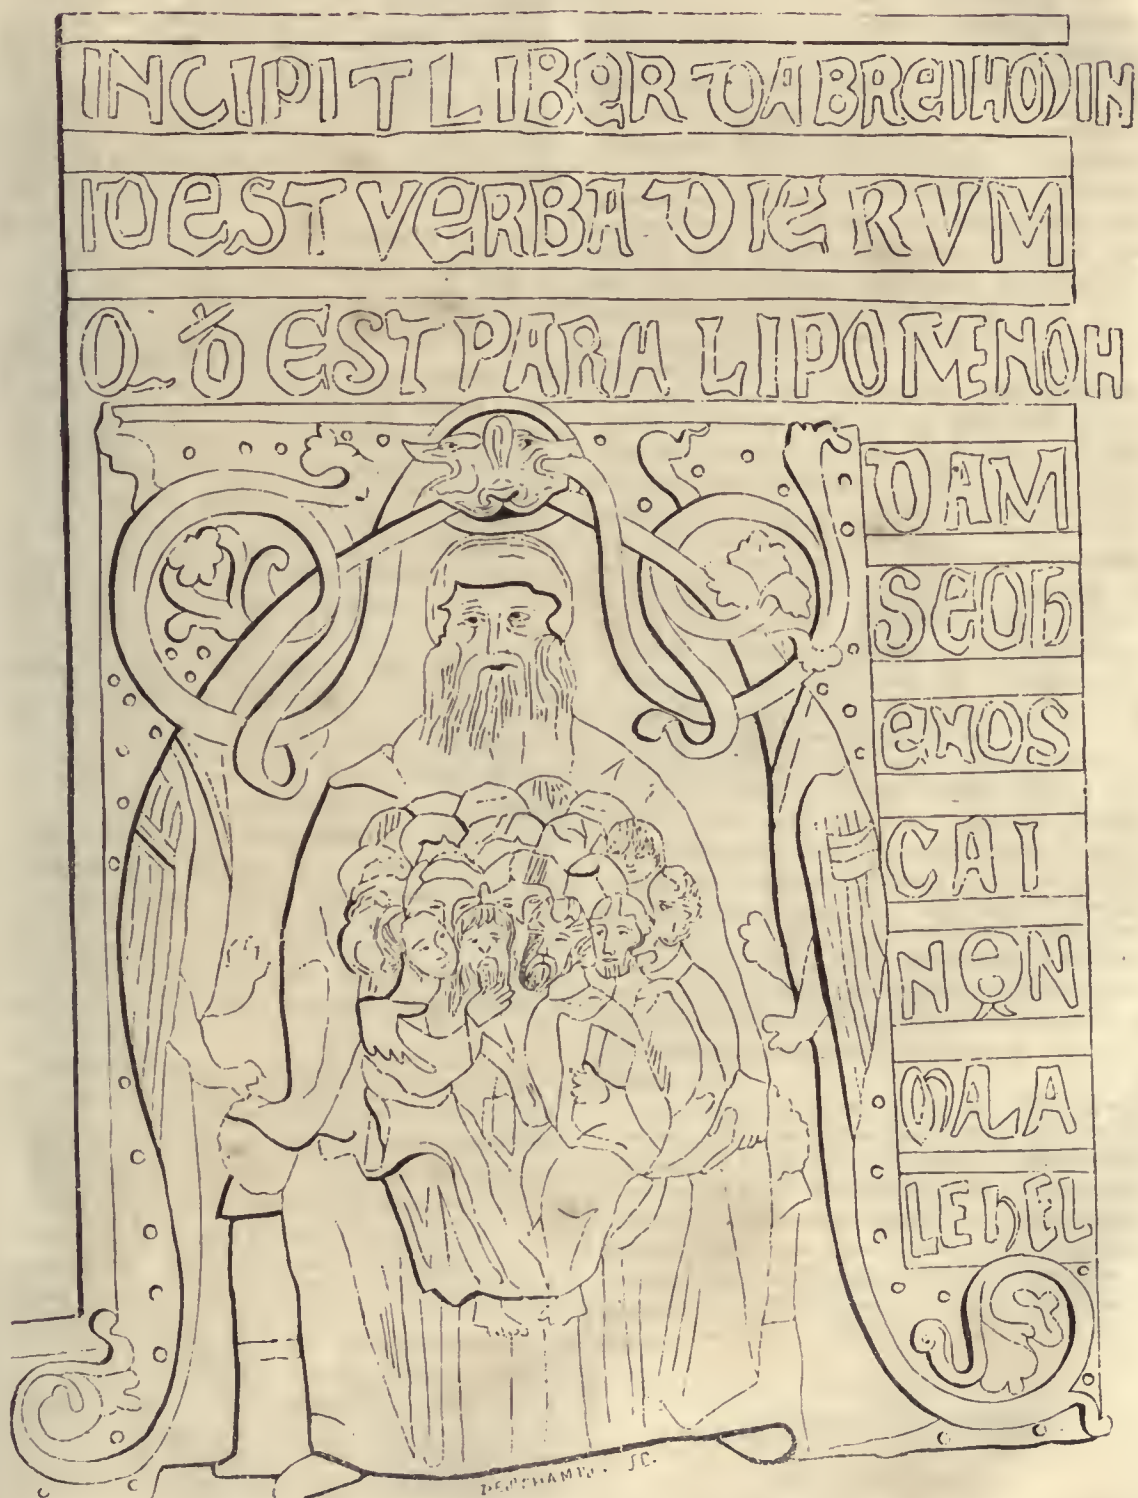 INCIPIT LIBER DABREIHODIN
IDEST VERBA DIERVM
QD EST PARALIPOMENON
DAM
SEOh
ENOS
CAI
NEN
MALA
LEhEL
DESCHAMPS. SC.